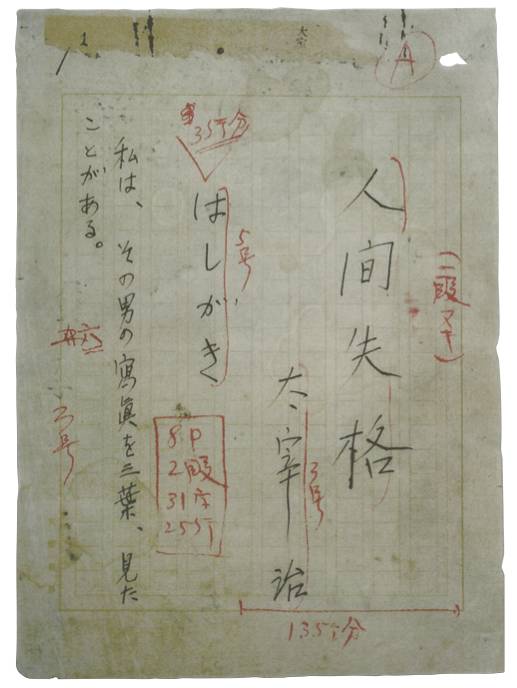 A
(二段ヌキ)
人間失格
太宰 治
3号
13行分
はしがき
5号
35行分
8P
2段
31字
25行
私は、その男の寫眞を三葉、見た
ことがある。
3号